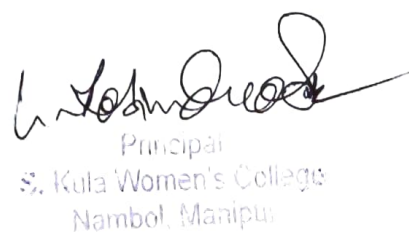 Principal
S. Kula Women's College
Nambol, Manipur